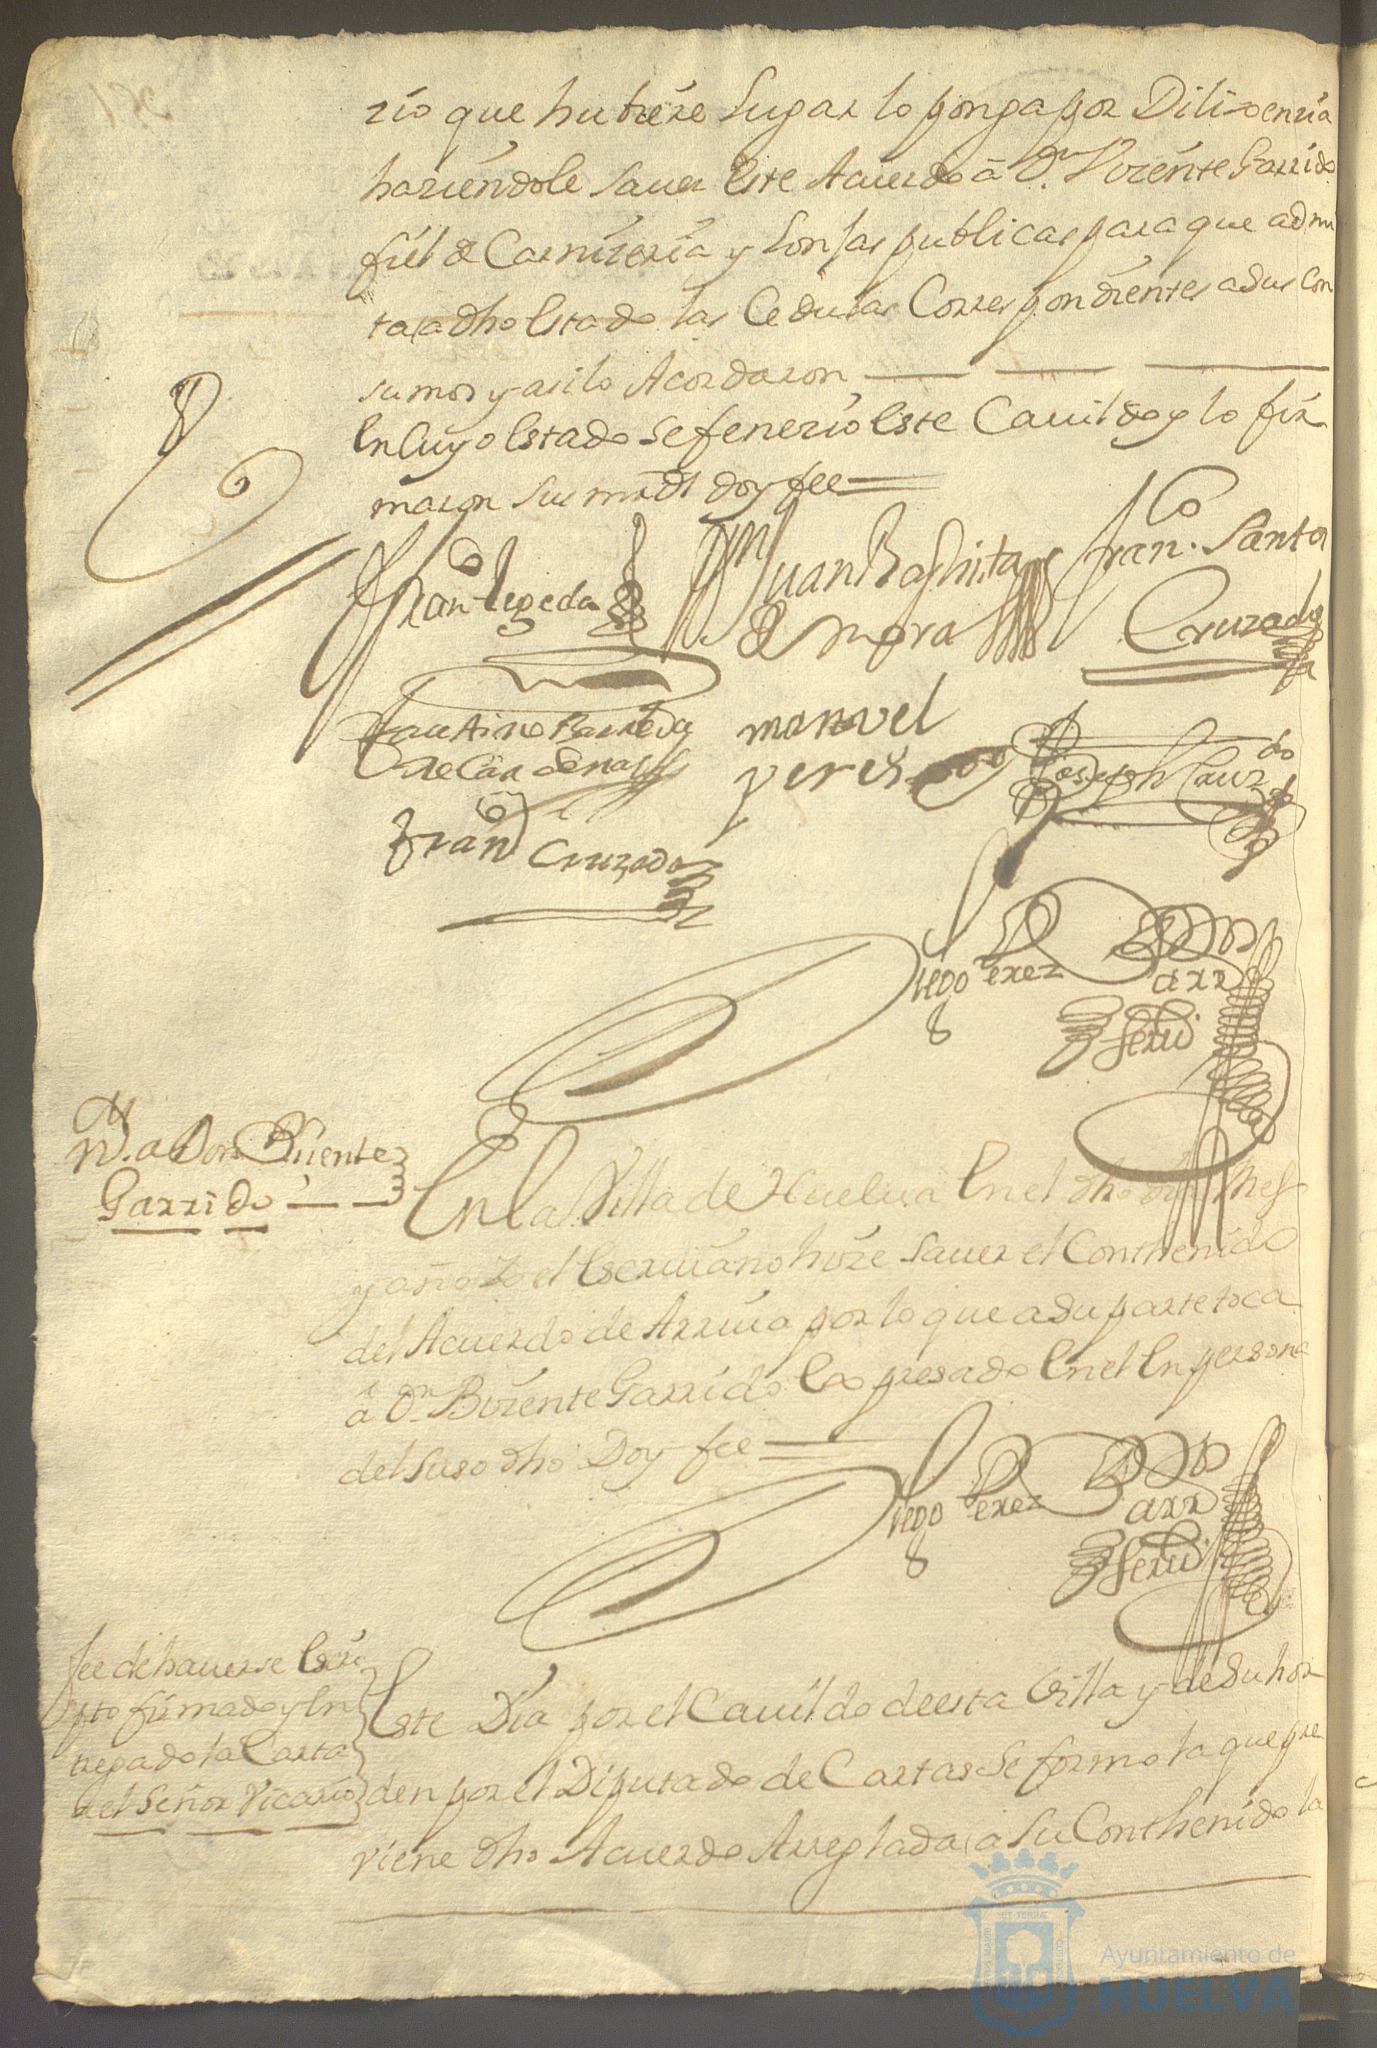 rio que hubiere lugar lo ponga por Dilixenzia
haziendole saver este Acuerdo â Dn. Vizente Garrido
fiel de Carnizeria y lonjas publicas para que admi
ta a dho Estado las Cedulas Correspondientes a sus Con
sumos y asi lo Acordaron
En Cuyo Estado se fenezio este Cavildo y lo fir
maron sus mrds doy fee
Fran.co Zepeda
Juan Baphista
de Mora
Fran.co Santos
Cruzado
Faustino Barreda
de Cardenas
manuel
perez
Joseph Cavz.do
Fran.co Cruzado
Diego Perez
Serv.
N.on a Don Vizente
Garrido
En la Villa de Huelva En el dho dia Mes
y año Yo el Escrivano hize saver el Conthenido
del Acuerdo de Arriva por lo que a su parte toca
â Dn. Bizente Garrido Expresado En el En persona
del suso dho Doy fee
Diego Perez
Serv.
fee de haverse Escri
pto firmado y En
tregado la Carta
al Señor Vicario
Este Dia por el Cavildo de esta Villa y de su hor
den por el Diputado de Cartas se formo la que pre
viene dho Acuerdo Arreglada a su Conthenido la
Ayuntamiento de
HUELVA